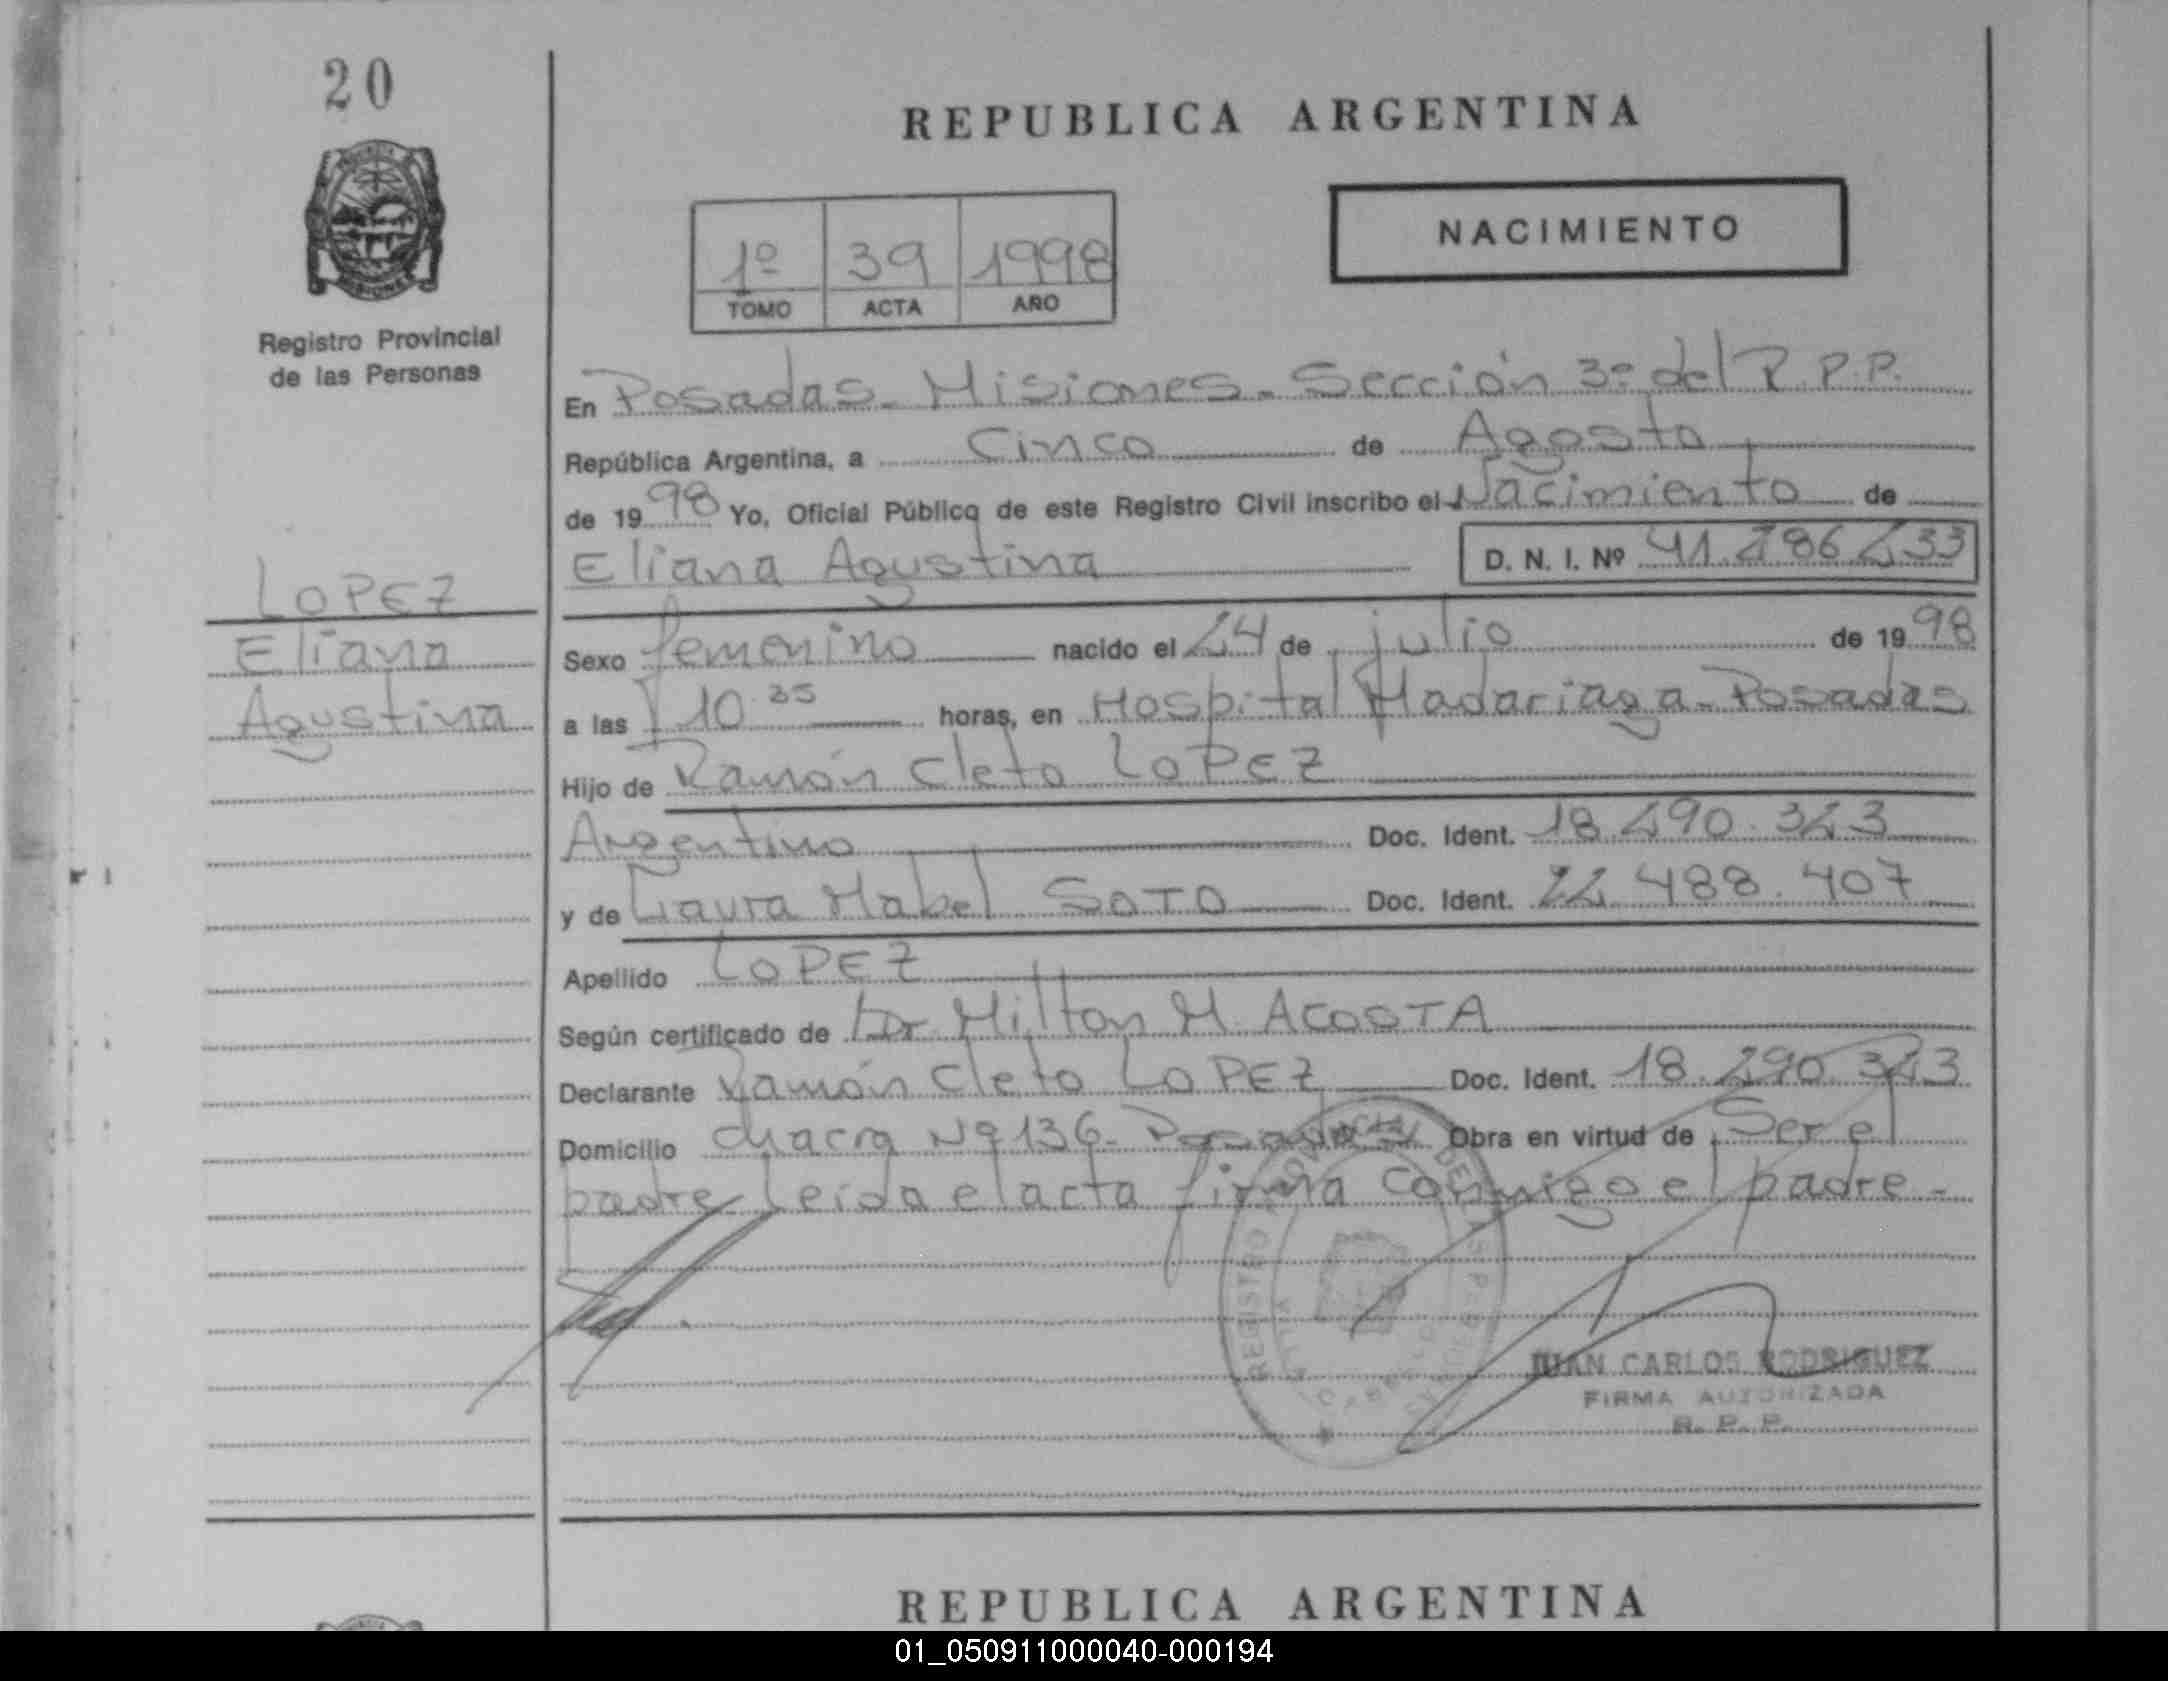 20
REPUBLICA ARGENTINA
NACIMIENTO
1º 39 1998
TOMO ACTA AÑO
Registro Provincial
de las Personas
En Posadas - Misiones - Sección 3º del R.P.P.
República Argentina, a Cinco de Agosto
de 1998 Yo, Oficial Público de este Registro Civil inscribo el Nacimiento de
Eliana Agustina D. N. I. Nº 41.286.233
LOPEZ
Eliana
Agustina
Sexo femenino nacido el 24 de julio de 1998
a las 10.35 horas, en Hospital Madariaga - Posadas
Hijo de Ramón Cleto LOPEZ
Argentino Doc. Ident. 18.290.323
y de Laura Mabel SOTO Doc. Ident. 22.488.407
Apellido LOPEZ
Según certificado de Dr. Milton M. ACOSTA
Declarante Ramón Cleto LOPEZ Doc. Ident. 18.290.323
Domicilio chacra Nº 136 - Posadas Obra en virtud de Ser el
padre Leida el acta firma conmigo el padre -
JUAN CARLOS RODRIGUEZ
FIRMA AUTORIZADA
R. P. P.
REPUBLICA ARGENTINA
01_050911000040-000194